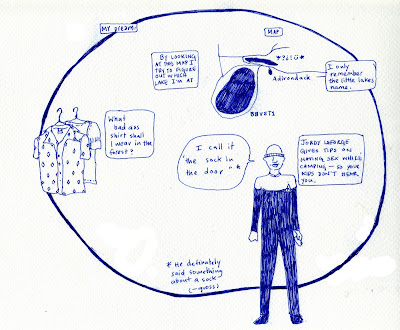 MY DREAM:
MAP
BY LOOKING
AT THIS MAP I
TRY TO FIGURE
OUT WHICH
LAKE I'M AT
*?!:;*
Adirondack
I only
remember
the little lakes
name.
What
bad ass
shirt shall
I wear in the
forest?
I call it
"the sock in
the door"*
JORDY LAFORGE
GIVES TIPS ON
HAVING SEX WHILE
CAMPING – SO YOUR
KIDS DON'T HEAR
YOU.
* He definately
said something
about a sock
(–gross)